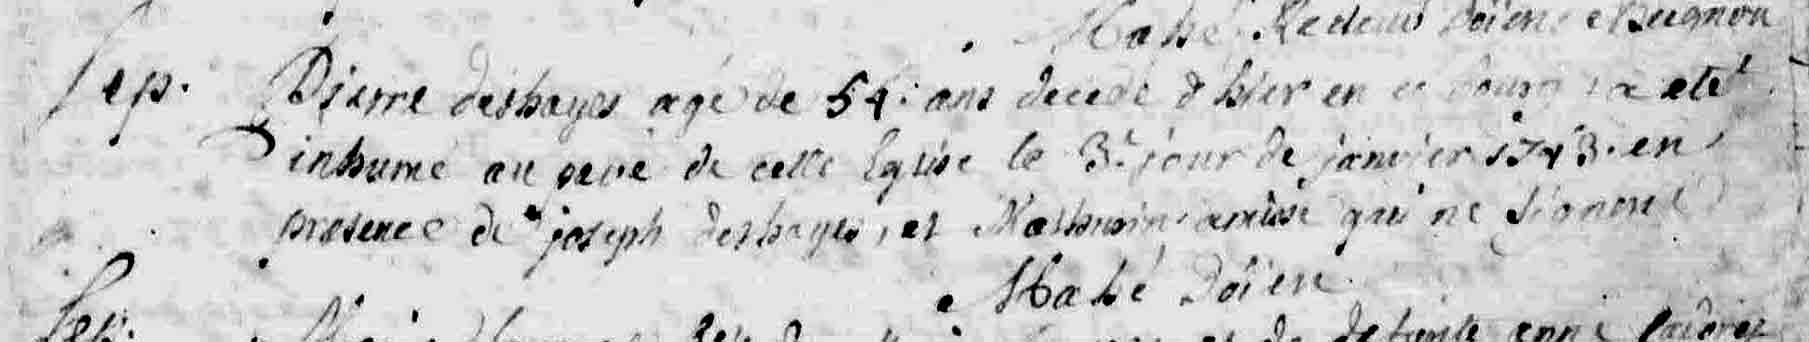 Mahé Recteur Doïen de Beignon
Sep. Pierre deshayes agé de 54. ans decedé d'hier en ce bourg a eté
inhumé au pavé de cette Eglise le 3e. jour de janvier 1743. en
presence de joseph deshayes, et Mathurin qui ne signent
Mahé Doïen
Sep. de defunte